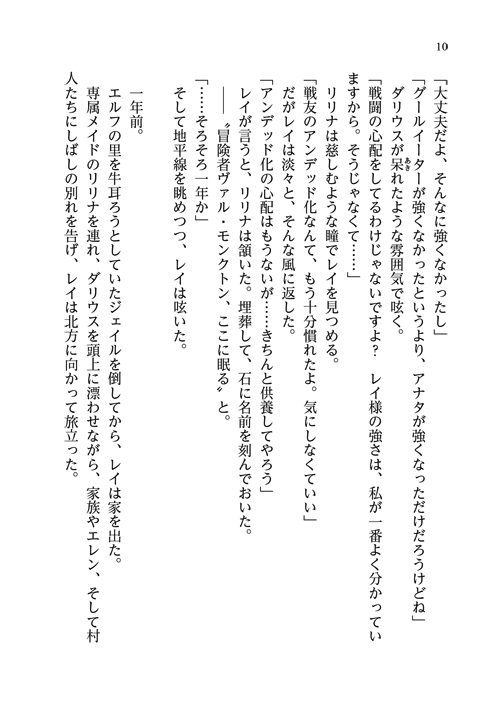 10
「大丈夫だよ、そんなに強くなかったし」
「グールイーターが強くなかったというより、アナタが強くなっただけだろうけどね」
ダリウスが呆れたような雰囲気で呟く。
あき
「戦闘の心配をしてるわけじゃないですよ？　レイ様の強さは、私が一番よく分かってい
ますから。そうじゃなくて……」
リリナは慈しむような瞳でレイを見つめる。
「戦友のアンデッド化なんて、もう十分慣れたよ。気にしなくていい」
だがレイは淡々と、そんな風に返した。
「アンデッド化の心配はもうないが……きちんと供養してやろう」
レイが言うと、リリナは頷いた。埋葬して、石に名前を刻んでおいた。
――〝冒険者ヴァル・モンクトン、ここに眠る〟と。
「……そろそろ一年か」
そして地平線を眺めつつ、レイは呟いた。
一年前。
エルフの里を牛耳ろうとしていたジェイルを倒してから、レイは家を出た。
専属メイドのリリナを連れ、ダリウスを頭上に漂わせながら、家族やエレン、そして村
人たちにしばしの別れを告げ、レイは北方に向かって旅立った。